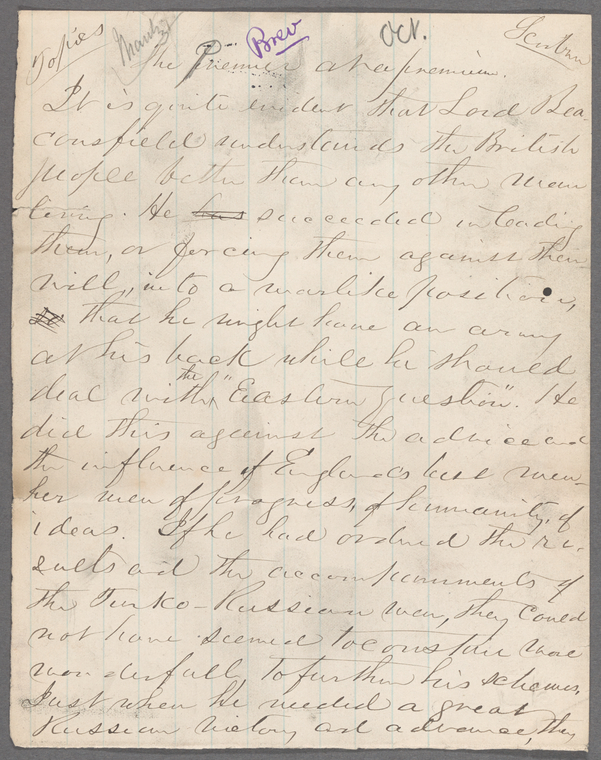 Topics Brev Oct. Scribner
The Premier at a premium.
It is quite evident that Lord Bea-
consfield understands the British
people better than any other man
living. He has succeeded in leading
them, or forcing them against their
will, into a warlike position,
that he might have an army
at his back while he should
deal with the "Eastern Question". He
did this against the advice and
the influence of England's best men—
her men of progress, of humanity, of
ideas. If he had ordered the re-
sults and the accompaniments of
the Turko-Russian war, they could
not have seemed to conspire more
wonderfully to further his schemes.
Just when he needed a great
Russian victory and advance, they